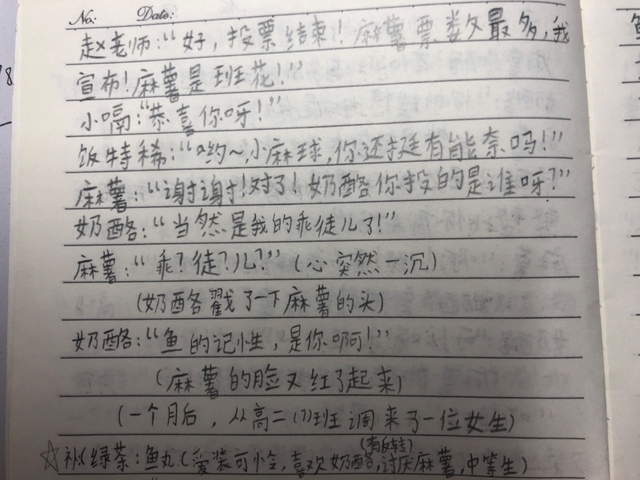 No: Date:
赵老师:“好,投票结束!麻薯票数最多,我
宣布!麻薯是班花!”
小嗝:“恭喜你呀!”
饭特稀:“哟~,小麻球,你还挺有能奈吗!”
麻薯:“谢谢!对了!奶酪你投的是谁呀?”
奶酪:“当然是我的乖徒儿了!”
麻薯:“乖?徒?儿?”(心突然一沉)
(奶酪戳了一下麻薯的头)
奶酪:“鱼的记性,是你啊!”
(麻薯的脸又红了起来)
(一个月后,从高二(7)班调来了一位女生)
(有反转)
☆补(绿茶:鱼丸(爱装可怜,喜欢奶酪,讨厌麻薯,中等生)